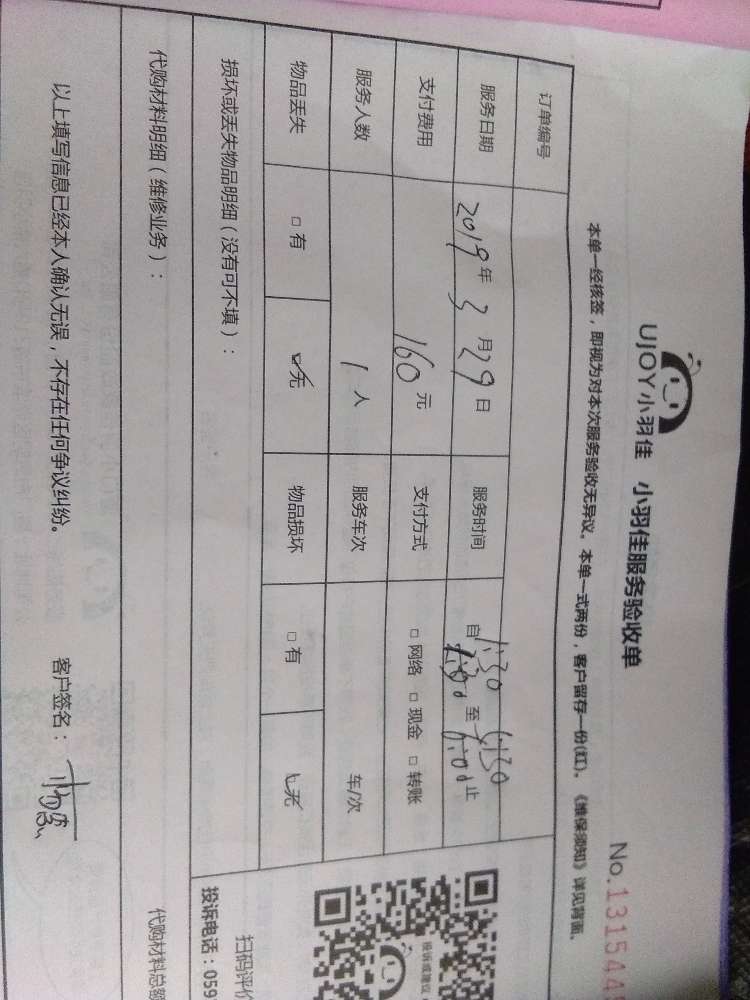 UJOY小羽佳 小羽佳服务验收单
No.131544
本单一经核签，即视为对本次服务验收无异议。本单一式两份，客户留存一份(红)。《维保须知》详见背面。
订单编号
服务日期 2019年3月29日 服务时间 自1:30至6:30止
支付费用 160元 支付方式 □网络 □现金 □转账
服务人数 1人 服务车次 车/次
物品丢失 □有 ☑无 物品损坏 □有 ☑无
损坏或丢失物品明细（没有可不填）：
代购材料明细（维修业务）： 代购材料总额
以上填写信息已经本人确认无误，不存在任何争议纠纷。 客户签名：
投诉或建议
扫码评价
投诉电话：059